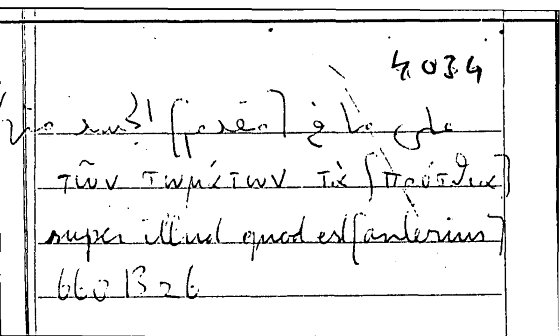 4034
على ما في [مقدم] الجسد
τῶν σωμάτων τὰ [πρόσθια]
super illud quod est [anterius]
660 B 26